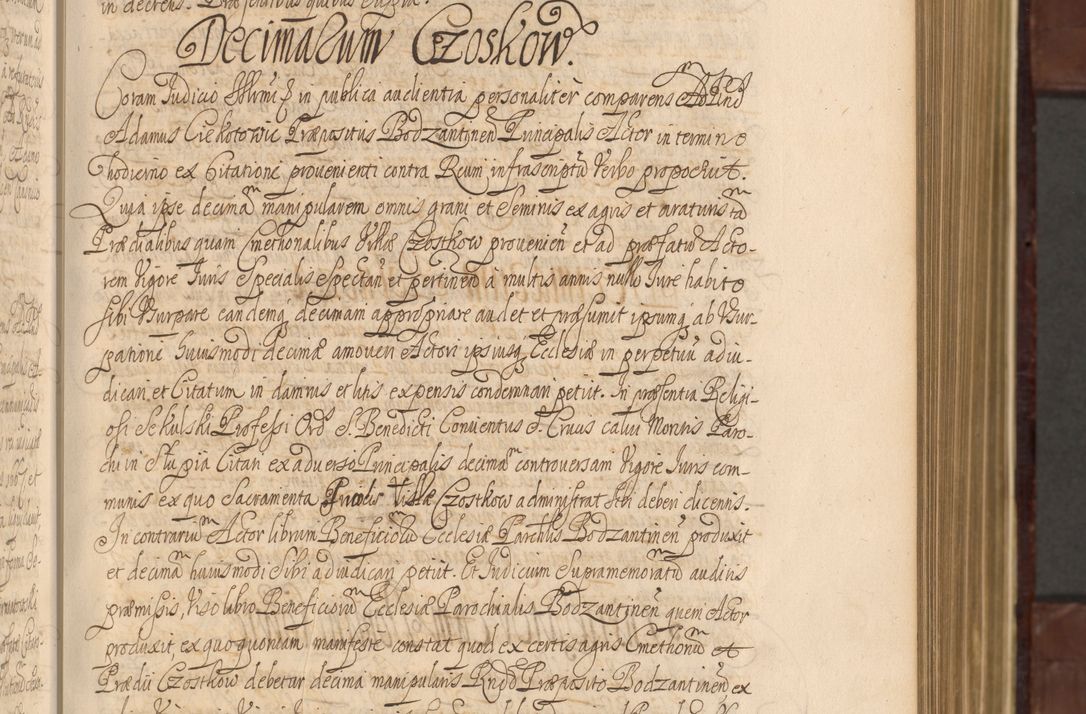 Decimarum Czoskow.
Coram Judicio Illrmi D in publica audientia personaliter comparens Adm Rnd
Adamus Ciekotowic Præpositus Bodzantinen Principalis Actor in termino
hodierno ex Citatione provenienti contra Reum infrascriptũ Verbo proposuit.
Quia ipse decimam manipularem omnis grani et Seminis ex agris et araturis tam
Prædialibus quam Cmethonalibus Villæ Czostkow provenien et ad præfatũ Acto-
rem Vigore Juris Specialis Spectan et pertinen à multis annis nullo Jure habito
sibi Usurpare eandemq decimam appropriare audet et præsumit ipsumq ab Usur-
patione huiusmodi decimæ amoveri Actori ipsiusq Ecclesiæ in perpetuũ adiu-
dicari et Citatum in damnis et litis expensis condemnari petiit. In præsentia Religi-
osi Sekulski Professi Ord S. Benedicti Conventus S. Crucis calvi Montis Paro-
chi in Slupia Citati ex adverso Principalis decimam controversam Vigore Juris com-
munis ex quo Sacramenta Villæ Czostkow administrat sibi deberi dicentis.
In contrarium Actor librum Beneficiorum Ecclesiæ Parchlis Bodzantinen produxit
et decimam huiusmodi Sibi adiudicari petiit. Et Judicium Supramemoratũ auditis
præmissis, Viso libro Beneficiorũ Ecclesiæ Parochialis Bodzantinen quem Actor
produxit ex quo quoniam manifeste constat quod ex certis agris Cmethonum et
Prædii Czostkow debetur decima manipularis Rndo Præposito Bodzantinen ex